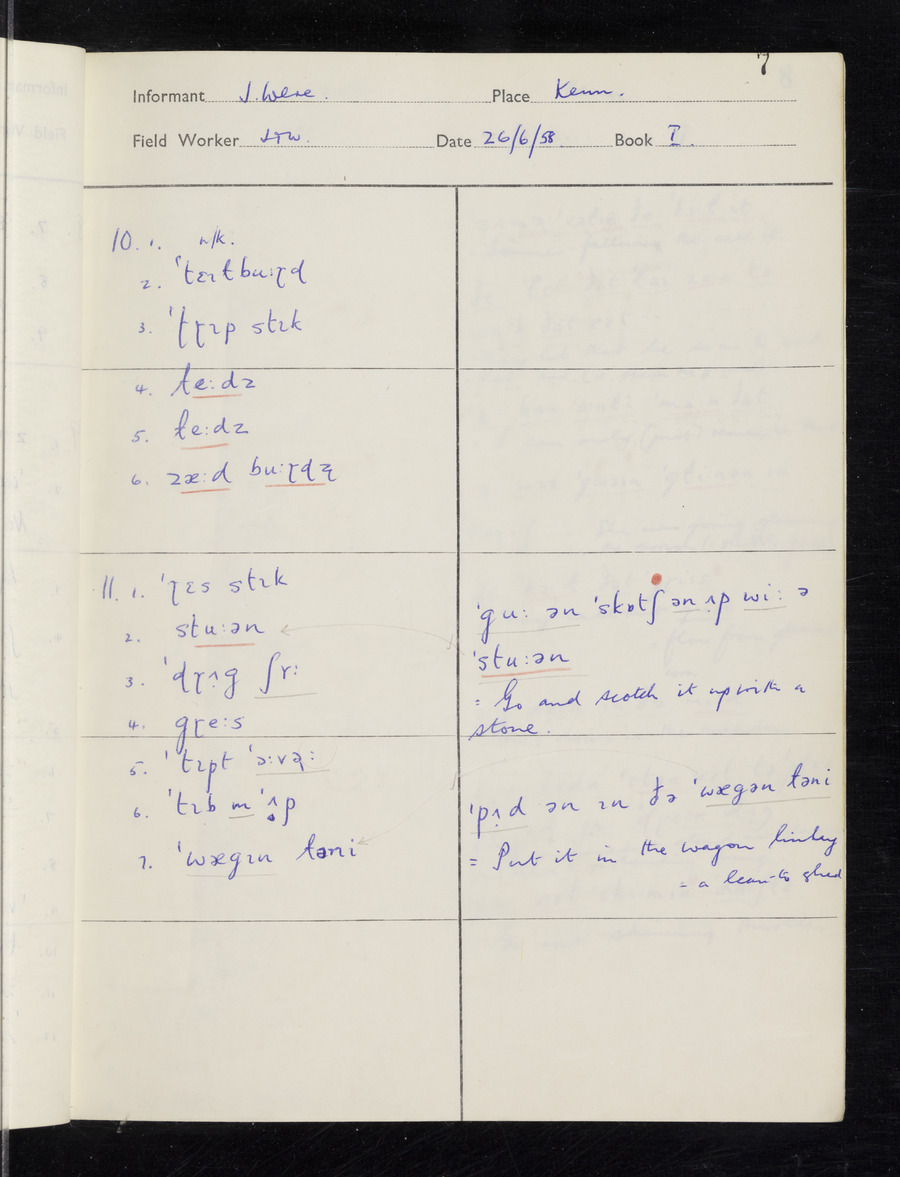 7
Informant J. Were. Place Kenn.
Field Worker JTW. Date 26/6/58 Book I.
10. 1. n/k.
2. ˈtɛɪtbuːɽd
3. ˈtɽɪp stɪk
4. ɫeːdz
5. ɫeːdz
6. zæːd buːɽdz̢
11. 1. ˈɽɛs stɪk
2. stuːən
3. ˈdɽʌg
4. gɽeːs
5. ˈtɪpt
6. ˈtɪb m ˈʌp
7. ˈwægɪn
ˈguː ən ˈskɒtʃ ən ʌp wiː ə
ˈstuːən
= Go and scotch it up with a
stone.
ˈpʌd ən ɪn ðə ˈwægən
= Put it in the wagon linhay
= a lean-to shed